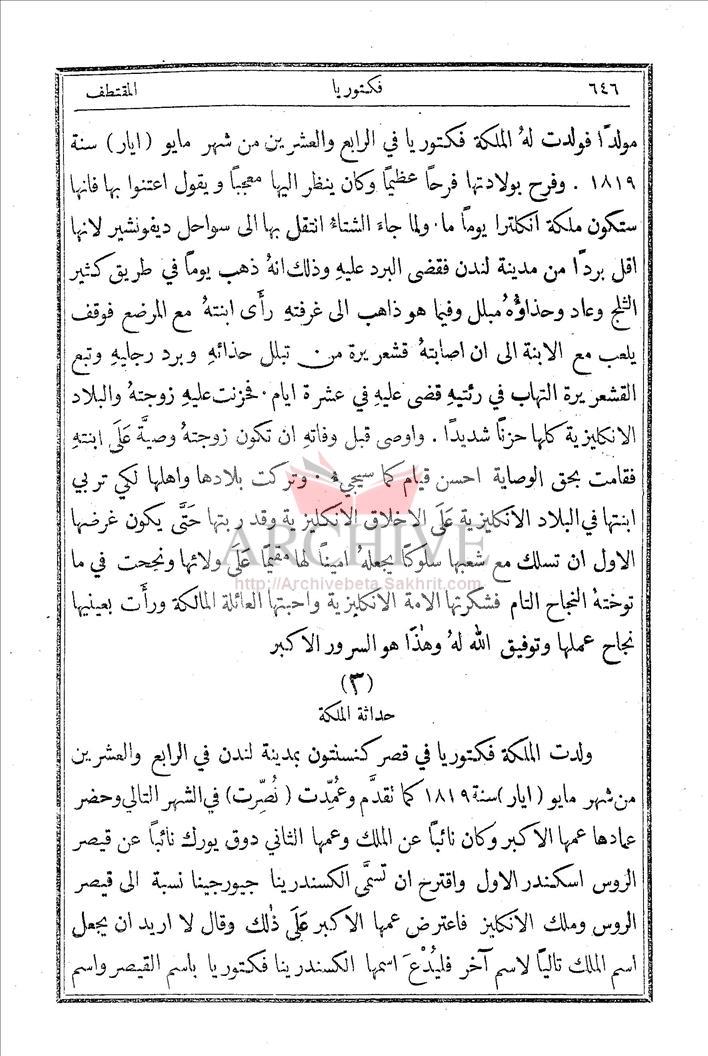 ٦٤٦ فكتوريا المقتطف
مولدًا فولدت لهُ الملكة فكتوريا في الرابع والعشرين من شهر مايو (ايار) سنة
١٨١٩ . وفرح بولادتها فرحاً عظيمًا وكان ينظر اليها معجباً ويقول اعتنوا بها فانها
ستكون ملكة انكلترا يوماً ما . ولما جاءَ الشتاءُ انتقل بها الى سواحل ديفونشير لانها
اقل بردًا من مدينة لندن فقضى البرد عليهِ وذلك انهُ ذهب يوماً في طريق كثير
الثلج وعاد وحذاؤهُ مبلل وفيما هو ذاهب الى غرفتهِ رأَى ابنتهُ مع المرضع فوقف
يلعب مع الابنة الى ان اصابتهُ قشعريرة من تبلل حذائهِ وبرد رجليهِ وتبع
القشعريرة التهاب في رئتيهِ قضى عليهِ في عشرة ايام . فحزنت عليهِ زوجتهُ والبلاد
الانكليزية كلها حزنًا شديدًا . واوصى قبل وفاتهِ ان تكون زوجتهُ وصيةً عَلَى ابنتهِ
فقامت بحق الوصاية احسن قيام كما سيجيءُ . وتركت بلادها واهلها لكي تربي
ابنتها في البلاد الانكليزية عَلَى الاخلاق الانكليزية وقد ربتها حَتَّى يكون غرضها
الاول ان تسلك مع شعبها سلوكًا يجعلهُ امينًا لها مقيمًا عَلَى ولائها ونجحت في ما
توختهُ النجاح التام فشكرتها الامة الانكليزية واحبتها العائلة المالكة ورأَت بعينيها
نجاح عملها وتوفيق الله لهُ وهٰذا هو السرور الاكبر
(٣)
حداثة الملكة
ولدت الملكة فكتوريا في قصر كنسنتون بمدينة لندن في الرابع والعشرين
من شهر مايو (ايار) سنة ١٨١٩ كما تقدَّم وعُمِّدت (نُصِّرت) في الشهر التالي وحضر
عمادها عمها الاكبر وكان نائباً عن الملك وعمها الثاني دوق يورك نائباً عن قيصر
الروس اسكندر الاول واقترح ان تسمَّى الكسندرينا جيورجينا نسبة الى قيصر
الروس وملك الانكليز فاعترض عمها الاكبر عَلَى ذٰلك وقال لا اريد ان يجعل
اسم الملك تالياً لاسم آخر فليُدْعَ اسمها الكسندرينا فكتوريا باسم القيصر واسم
ARCHIVE
http://Archivebeta.Sakhrit.com